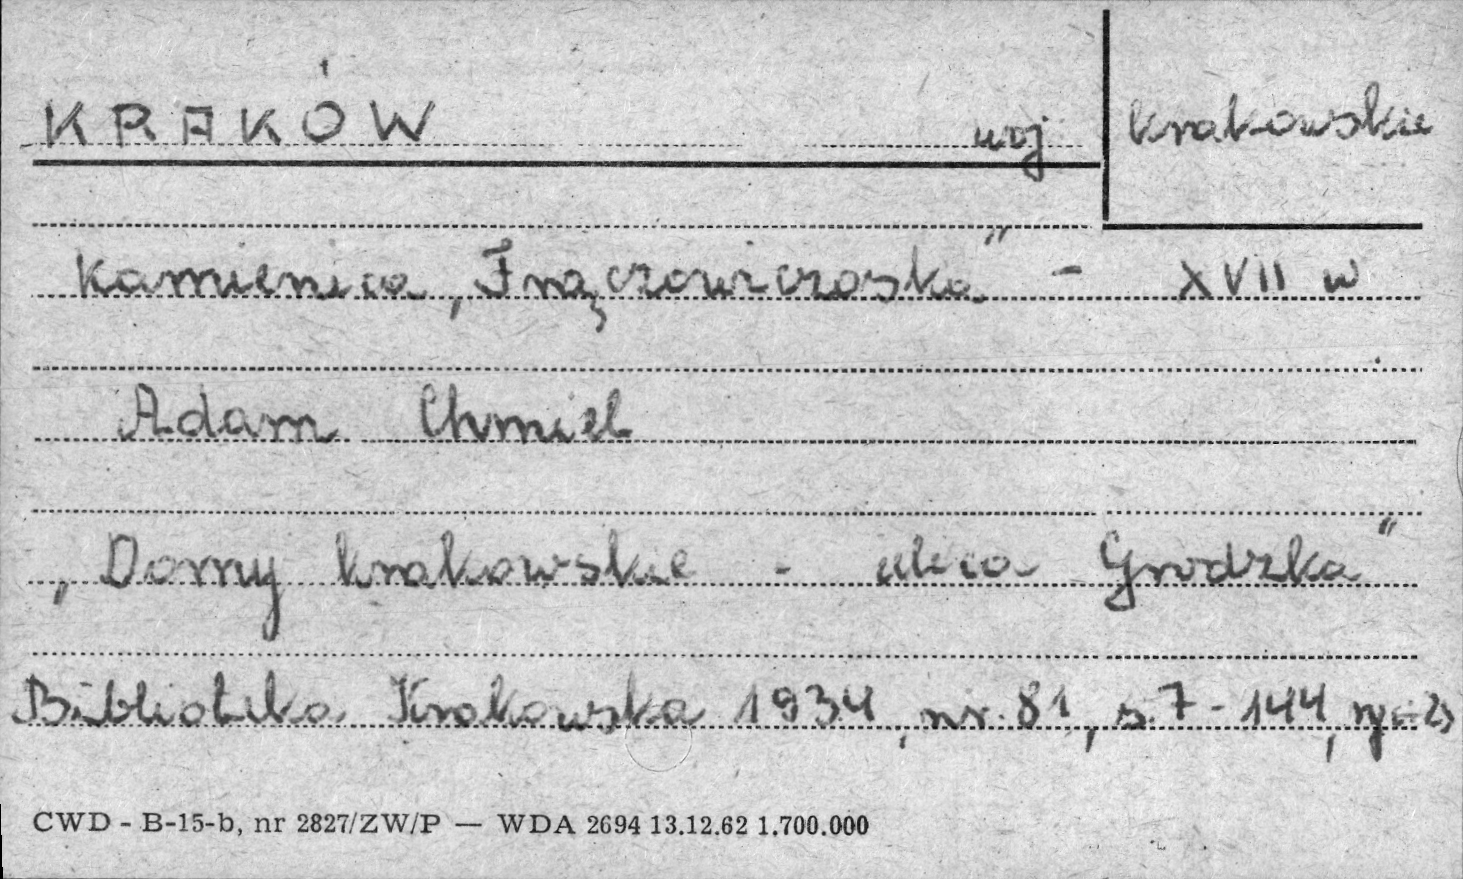 KRAKÓW woj krakowskie
kamienica „Frączowiczoska" - XVII w
Adam Chmiel
„Domy krakowskie - ulica Grodzka"
Biblioteka Krakowska 1934, nr. 81, s. 7 - 144,
CWD - B-15-b, nr 2827/ZW/P — WDA 2694 13.12.62 1.700.000